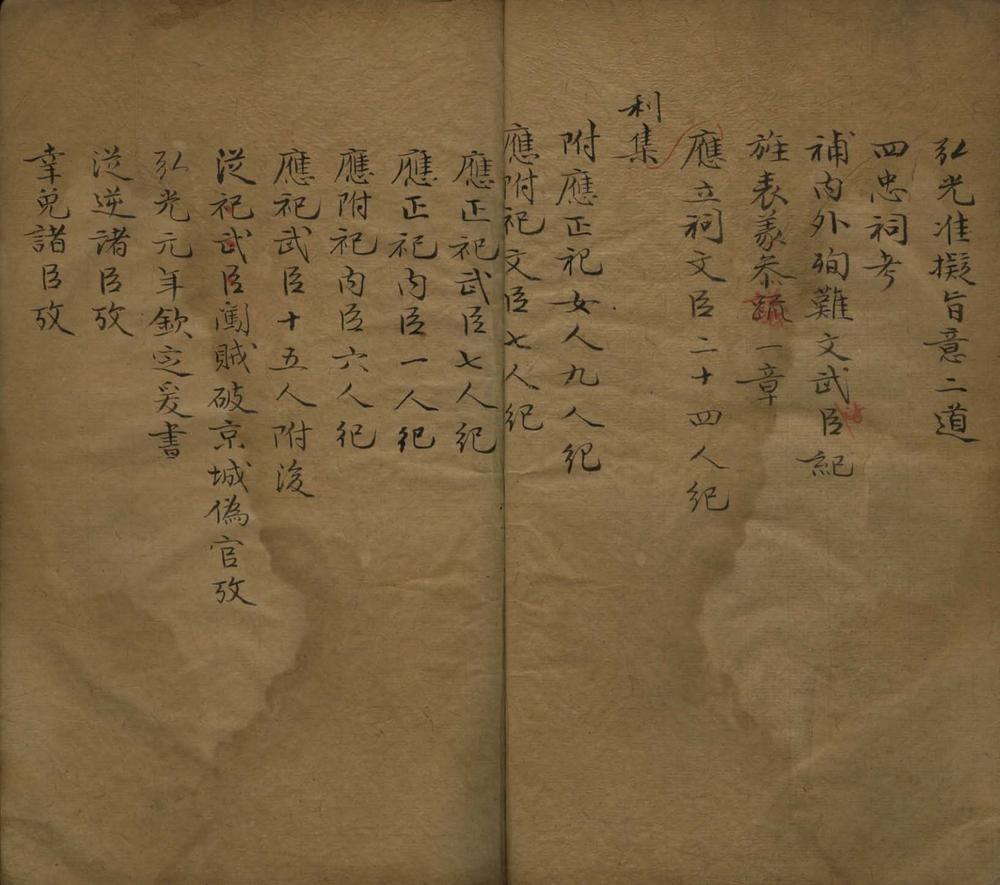 弘光准擬旨意二道
四忠祠考
補內外殉難文武臣紀
旌表義忝疏一章
應立祠文臣二十四人紀
利集
附應正祀女人九人紀
應附祀文臣七人紀
應正祀武臣七人紀
應正祀內臣一人紀
應附祀內臣六人紀
應祀武臣十五人附後
從祀武臣闖賊破京城偽官攷
弘光元年欽定爰書
從逆諸臣攷
幸免諸臣攷